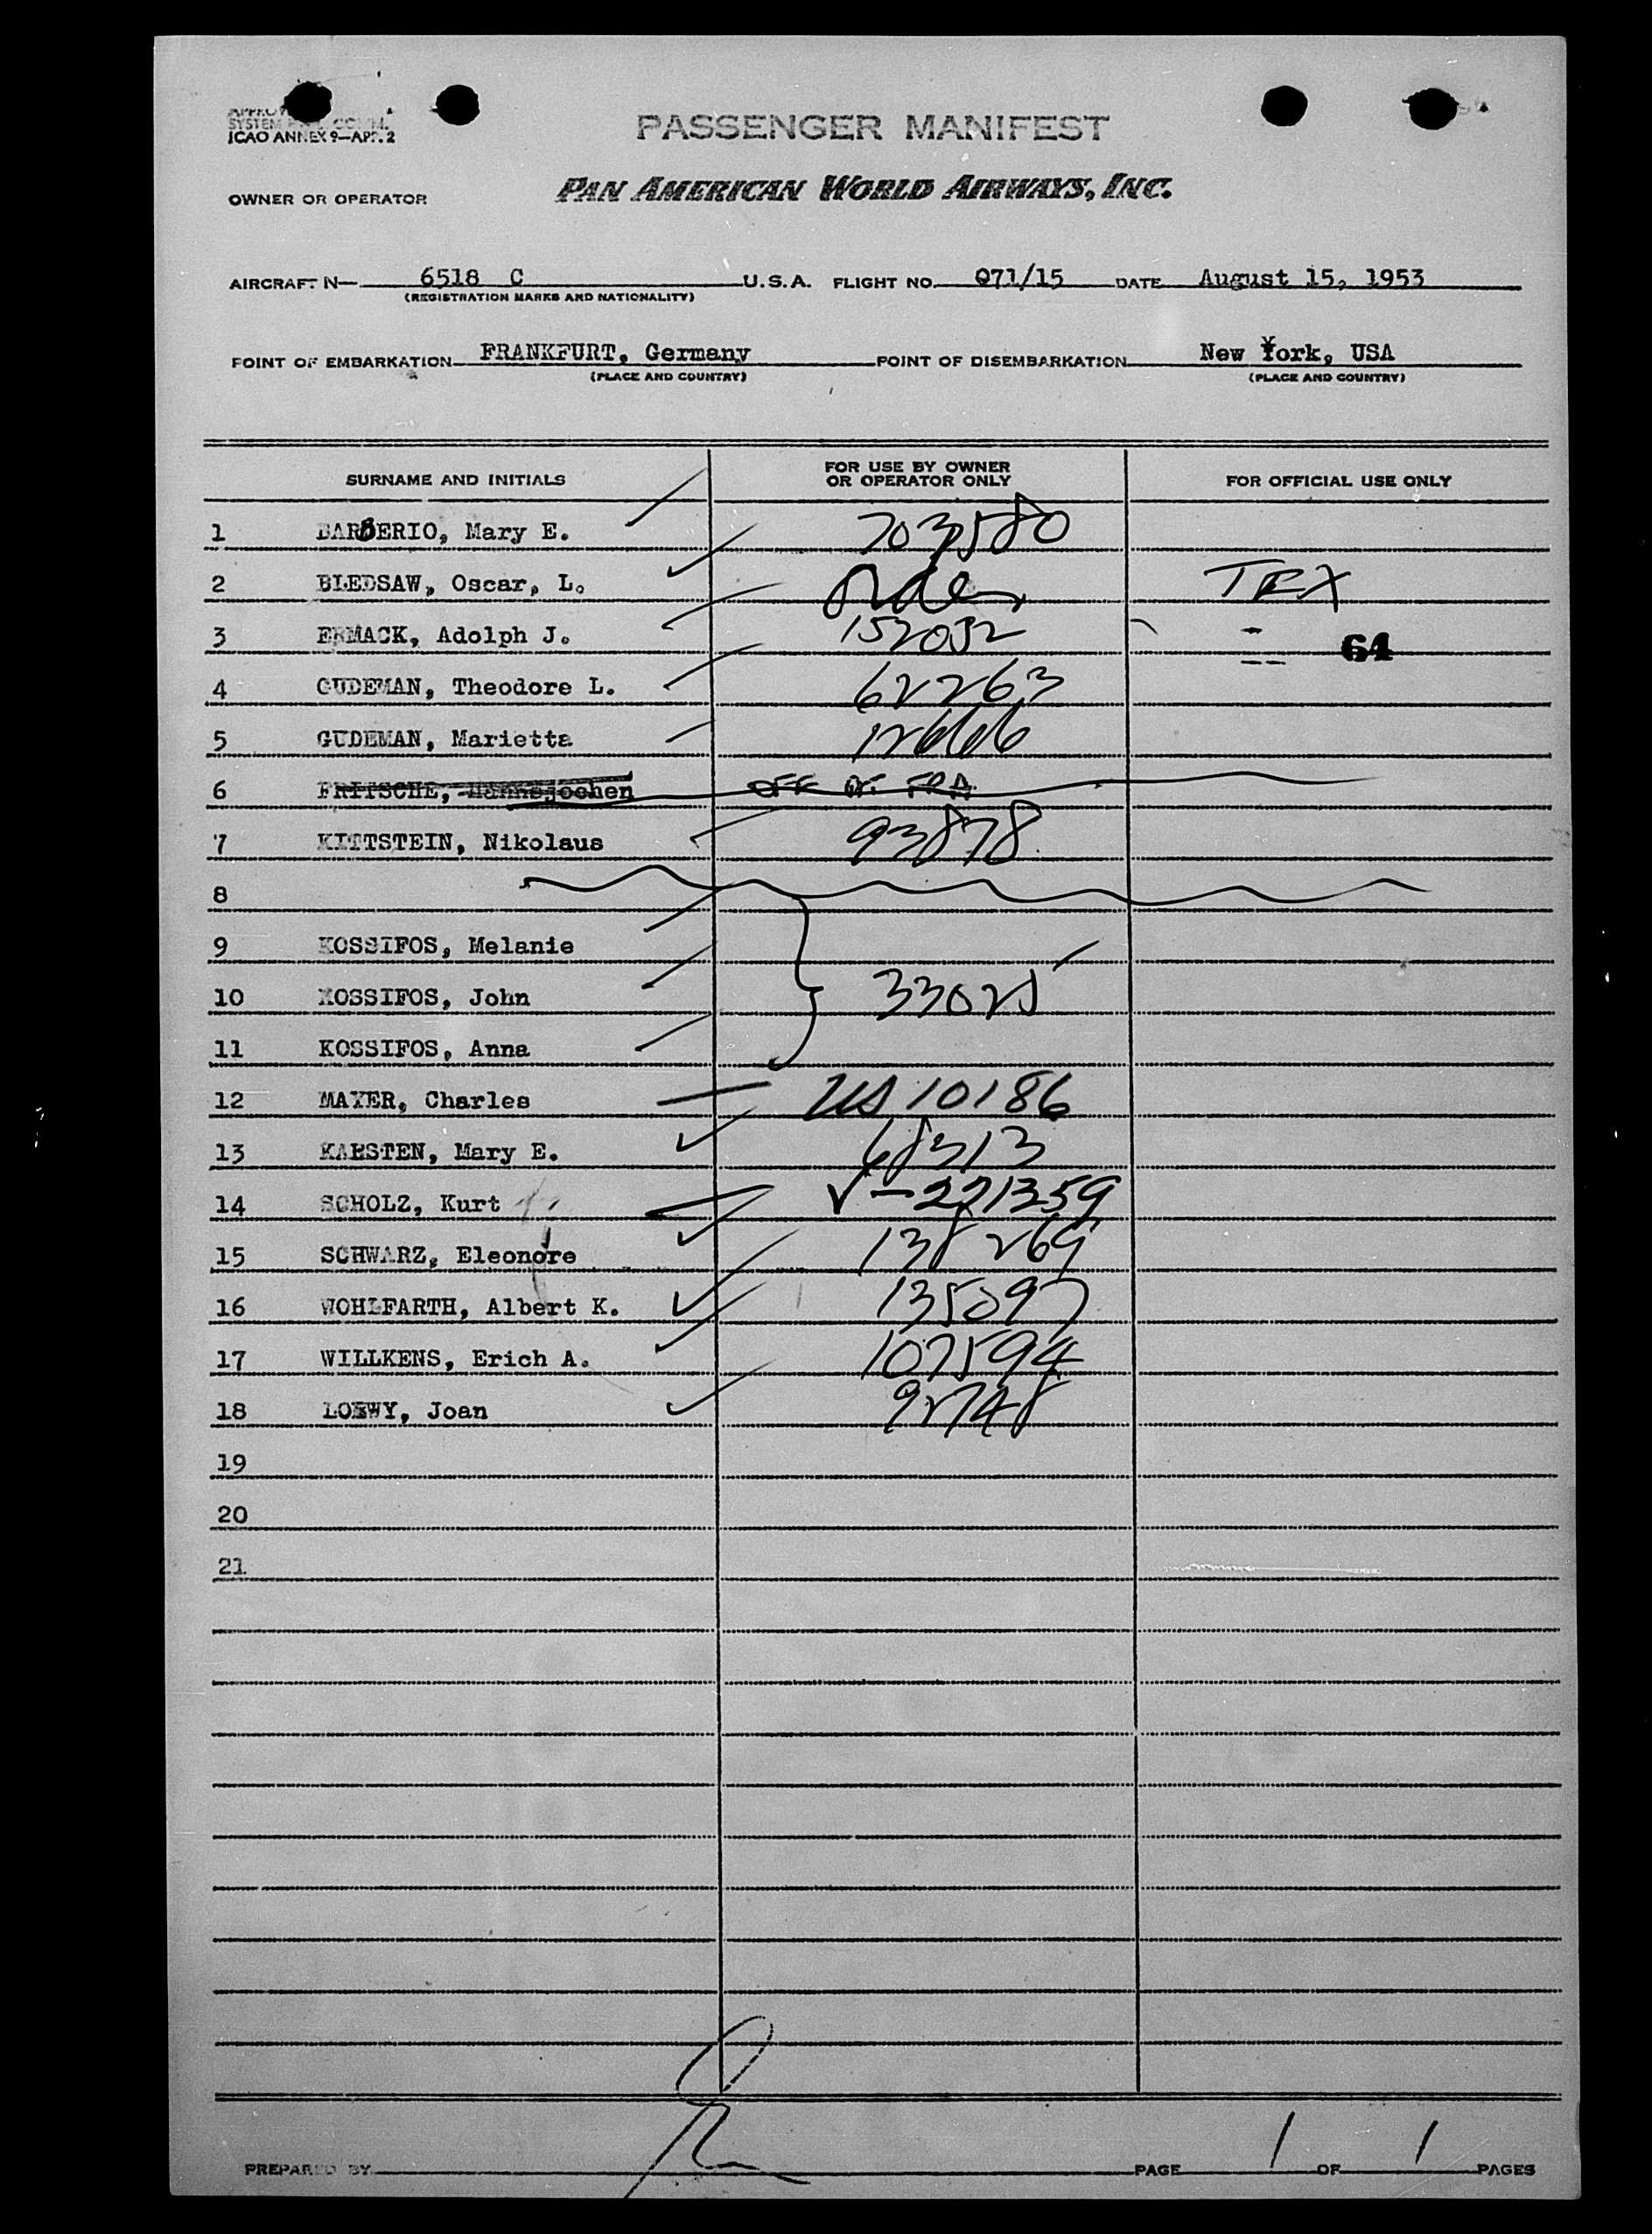 SYSTEM
ICAO ANNEX 9—APP. 2
PASSENGER MANIFEST
OWNER OR OPERATOR PAN AMERICAN WORLD AIRWAYS, INC.
AIRCRAFT N— 6518 C U.S.A. FLIGHT NO. 071/15 DATE August 15, 1953
(REGISTRATION MARKS AND NATIONALITY)
POINT OF EMBARKATION FRANKFURT, Germany POINT OF DISEMBARKATION New York, USA
(PLACE AND COUNTRY) (PLACE AND COUNTRY)
SURNAME AND INITIALS FOR USE BY OWNER OR OPERATOR ONLY FOR OFFICIAL USE ONLY
1 BARBERIO, Mary E. 703580
2 BLEDSAW, Oscar, L. TRX
3 ERMACK, Adolph J. 152032 64
4 GUDEMAN, Theodore L. 62263
5 GUDEMAN, Marietta 12666
6 FRITSCHE, Hannsjochen OFF FRA
7 KITTSTEIN, Nikolaus 93878
8
9 KOSSIFOS, Melanie
10 KOSSIFOS, John 33025
11 KOSSIFOS, Anna
12 MAYER, Charles US 10186
13 KARSTEN, Mary E. 68313
14 SCHOLZ, Kurt V-221359
15 SCHWARZ, Eleonore 138269
16 WOHLFARTH, Albert K. 135897
17 WILLKENS, Erich A. 107594
18 LOEWY, Joan 92748
19
20
21
PREPARED BY PAGE 1 OF 1 PAGES